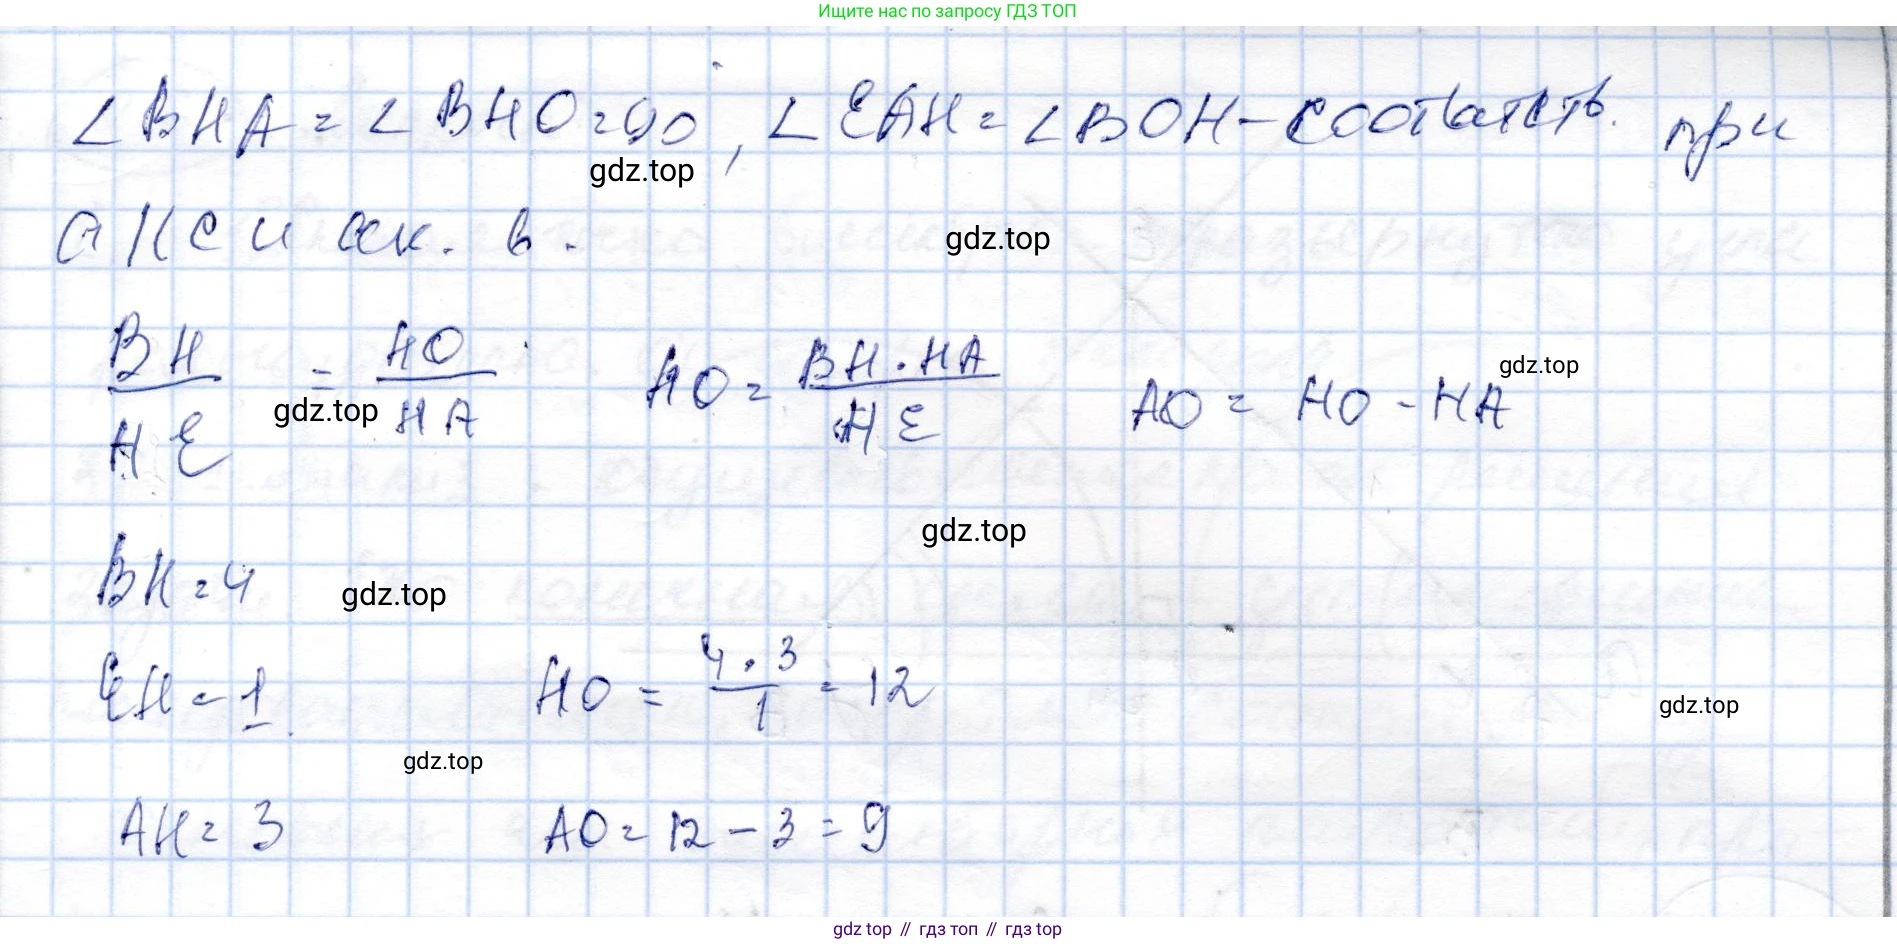 Ищите нас по запросу ГДЗ ТОП
∠BHA = ∠BHO = 90°, ∠EAH = ∠BOH - соответств. при
gdz.top
a ∥ c и сек. b.
gdz.top
BH/HE = HO/HA   HO = BH·HA/HE   AO = HO - HA
gdz.top
gdz.top
gdz.top
BH = 4
gdz.top
EH = 1   HO = 4·3/1 = 12
gdz.top
gdz.top
AH = 3   AO = 12 - 3 = 9
gdz top // гдз топ // gdz top